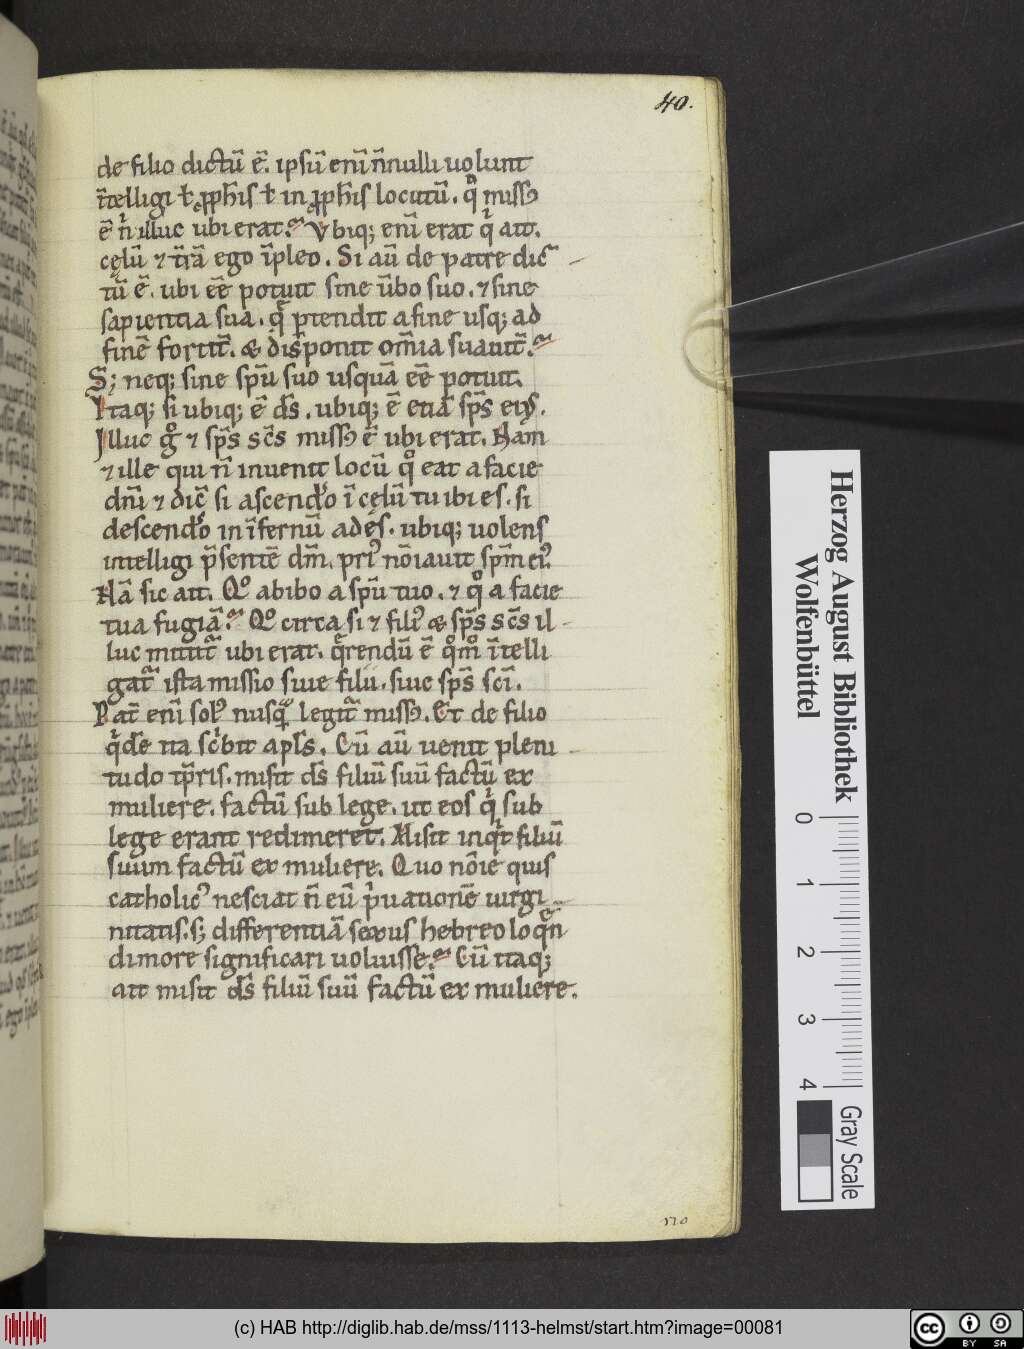 40.
de filio dictū ē. ipsū enī n̄nulli uolunt
īntelligi ł p̱ ꝓph̄is ł in ꝓph̄is locutū. qͦ missꝰ
ē n̍ illuc ubi erat. Vbiq; enī erat q̍ ait.
cęlū ⁊ t̄rā ego īpleo. Si aū de patre dic
tū ē. ubi eē potuit sine ūbo suo. ⁊ sine
sapientia sua. q̄ ꝑtendit a fine usq; ad
finē fortit̄. & disponit om̄ia suauit̄.
S; neq; sine sp̄u suo usquā eē potuit.
Itaq; si ubiq; ē d̄s. ubiq; ē etiā sp̄s eiꝰ.
Illuc gͦ ⁊ sp̄s sc̄s missꝰ ē ubi erat. Nam
⁊ ille qui n̄ inuenit locū qͦ eat a facie
dn̄i ⁊ dic̄ si ascendͦo ī cęlū tu ibi es. si
descendͦo in īfernū ades. ubiq; uolens
intelligi p̄sentē dm̄. priꝰ nōiauit sp̄m eiꝰ.
Nā sic ait. Qͦ abibo a sp̄u tuo. ⁊ qͦ a facie
tua fugiā. Qͦ circa si ⁊ filiꝰ & sp̄s sc̄s il
luc mittit̄ ubi erat. q̄rendū ē qͦmͦ ītelli
gat̄ ista missio siue filii. siue sp̄s sc̄i.
Pat̄ enī solꝰ nusq̄ legit̄ missꝰ. Et de filio
q̍de ita sc̍bit apl̄s. Cū aū uenit pleni
tudo tp̄ris. misit d̄s filiū suū factū ex
muliere. factū sub lege. ut eos q̍ sub
lege erant redimeret. Misit inq̍t filiū
suum factū ex muliere. Quo nōie quis
catholicꝰ nesciat n̄ eū p̍uationē uirgi
nitatis. s; differentiā sexus hebreo loq̄n
di more significari uoluisse. Cū itaq;
ait misit d̄s filiū suū factū ex muliere.
Herzog August Bibliothek
Wolfenbüttel
0 1 2 3 4
Gray Scale
(c) HAB http://diglib.hab.de/mss/1113-helmst/start.htm?image=00081
cc BY SA